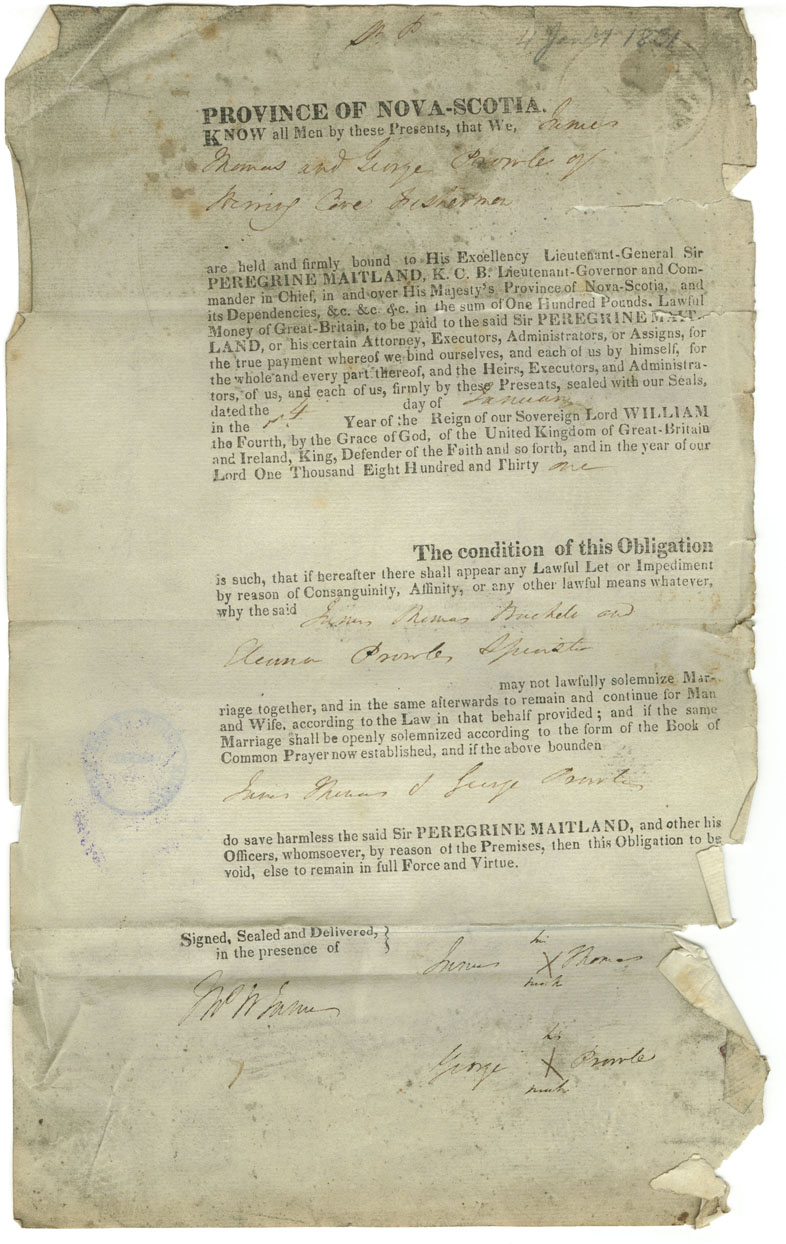 4 Jany 1831
PROVINCE OF NOVA-SCOTIA.
KNOW all Men by these Presents, that We, James
Thomas and George Prowles of
Herring Cove Fishermen
are held and firmly bound to His Excellency Lieutenant-General Sir
PEREGRINE MAITLAND, K. C. B. Lieutenant-Governor and Com-
mander in Chief, in and over His Majesty's Province of Nova-Scotia, and
its Dependencies, &c. &c. &c. in the sum of One Hundred Pounds, Lawful
Money of Great-Britain, to be paid to the said Sir PEREGRINE MAIT-
LAND, or his certain Attorney, Executors, Administrators, or Assigns, for
the true payment whereof we bind ourselves, and each of us by himself, for
the whole and every part thereof, and the Heirs, Executors, and Administra-
tors, of us, and each of us, firmly by these Presents, sealed with our Seals,
dated the 4 day of January
in the Year of the Reign of our Sovereign Lord WILLIAM
the Fourth, by the Grace of God, of the United Kingdom of Great-Britain
and Ireland, King, Defender of the Faith and so forth, and in the year of our
Lord One Thousand Eight Hundred and Thirty one
The condition of this Obligation
is such, that if hereafter there shall appear any Lawful Let or Impediment
by reason of Consanguinity, Affinity, or any other lawful means whatever,
why the said James Thomas Bachelor and
Eleanor Prowles Spinster
may not lawfully solemnize Mar-
riage together, and in the same afterwards to remain and continue for Man
and Wife, according to the Law in that behalf provided; and if the same
Marriage shall be openly solemnized according to the form of the Book of
Common Prayer now established, and if the above bounden
James Thomas & George Prowles
do save harmless the said Sir PEREGRINE MAITLAND, and other his
Officers, whomsoever, by reason of the Premises, then this Obligation to be
void, else to remain in full Force and Virtue.
Signed, Sealed and Delivered,
in the presence of
his
James X Thomas
mark
Thos W James
his
George X Prowles
mark